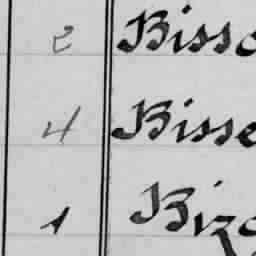 2 Bisso
4 Bisse
1 Bizo